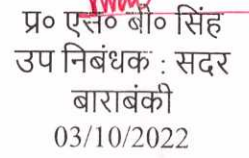 प्र० एस० बी० सिंह
उप निबंधक : सदर
बाराबंकी
03/10/2022